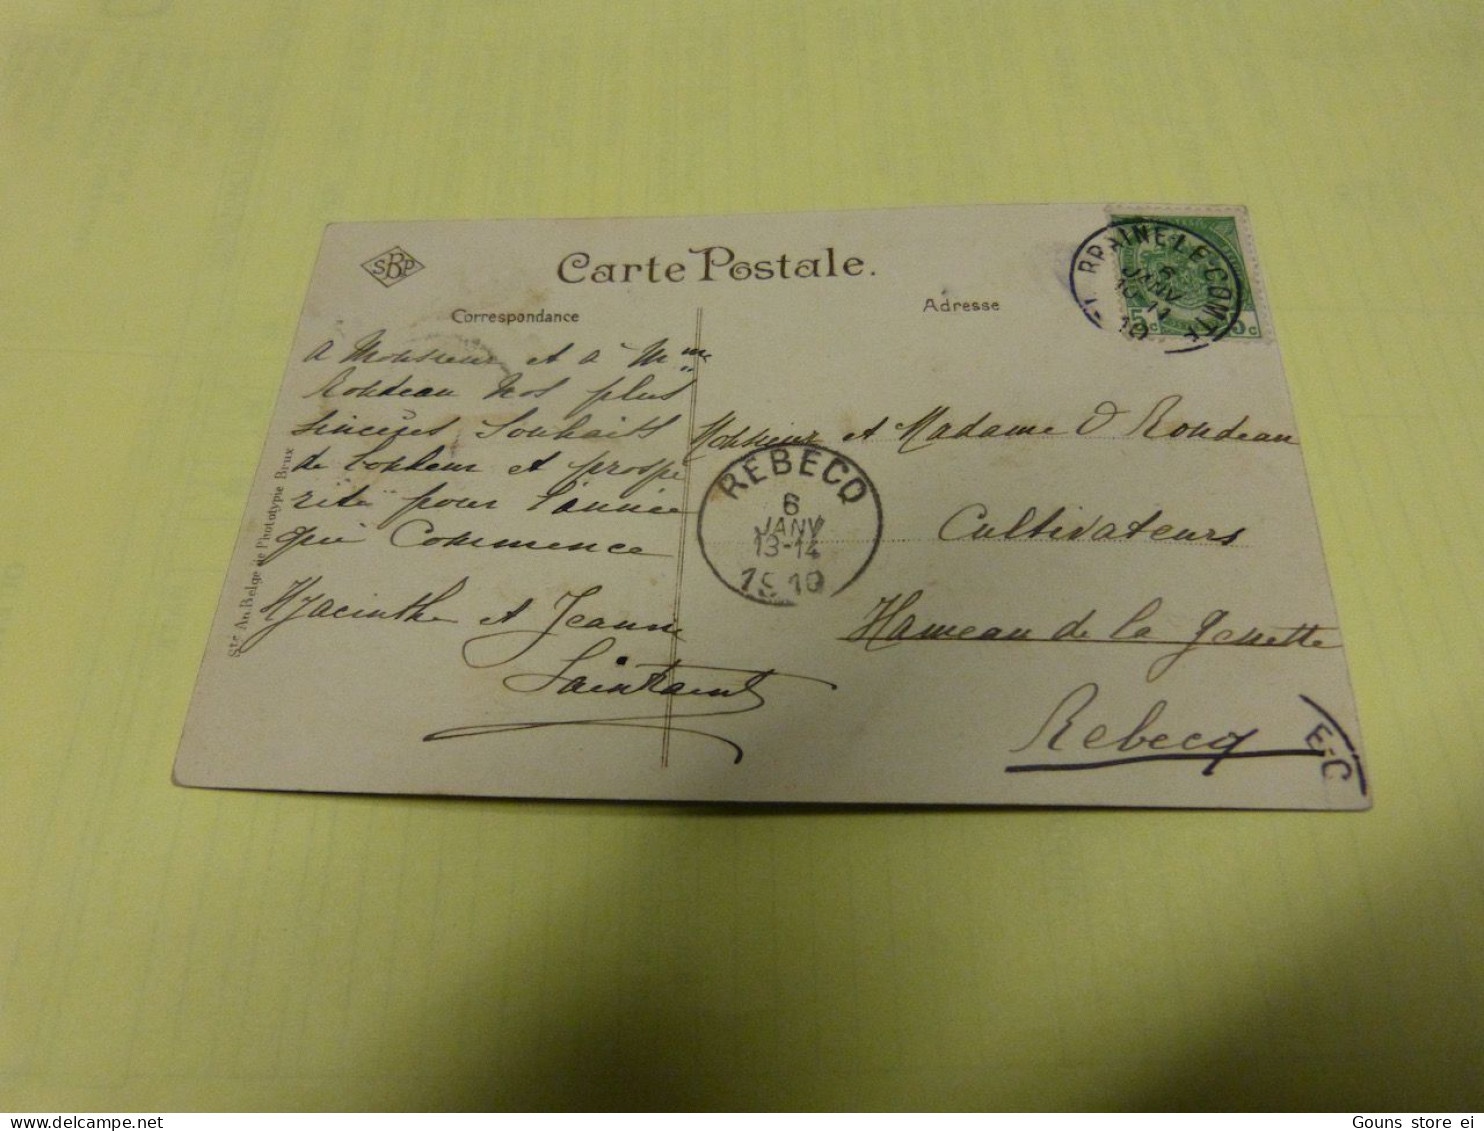 SBP
Carte Postale.
Correspondance
Adresse
BRAINE-LE-COMTE
6
JANV
10-11
1910
5c 5c
A Monsieur et à Mme
Rondeau Nos plus
sincères Souhaits
de bonheur et prospé
rité pour l'année
qui Commence
Hyacinthe et Jeanne
Saintraint
Monsieur et Madame O Rondeau
Cultivateurs
Hameau de la Genette
Rebecq
REBECQ
6
JANV
13-14
1910
E-C
Sté An. Belge de Phototypie Brux
Gouns store ei